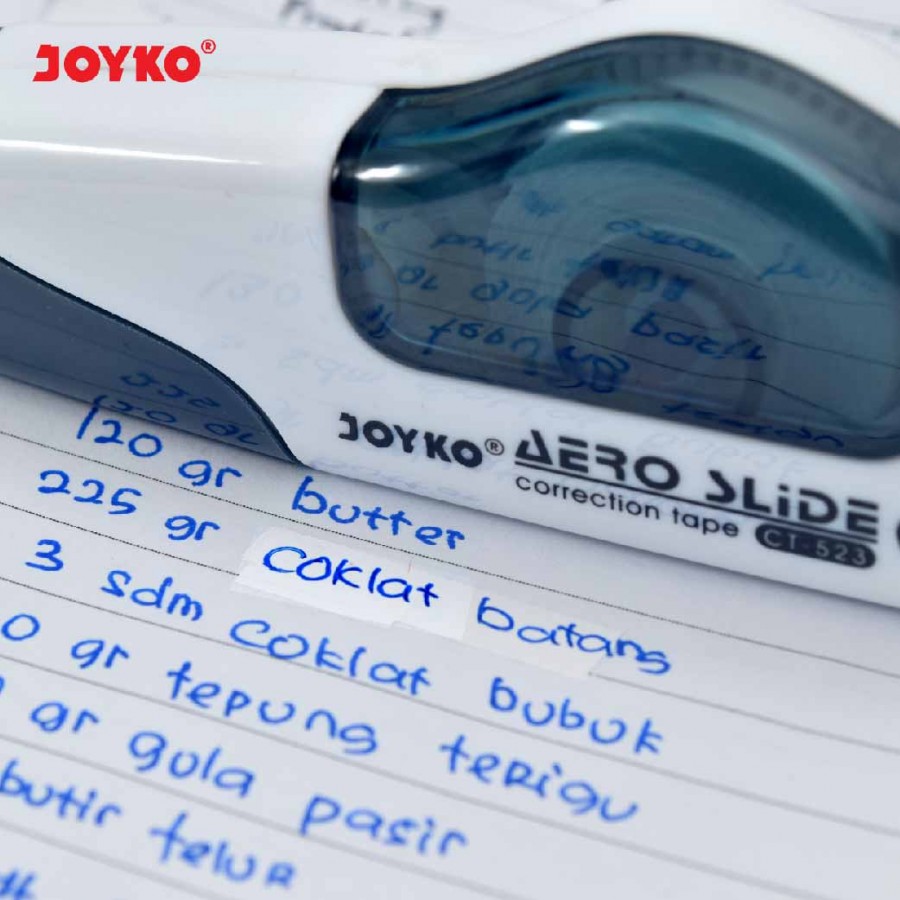 JOYKO®
JOYKO® AERO SLIDE
correction tape CT-523
120 gr butter
225 gr coklat batang
3 sdm coklat bubuk
0 gr tepung terigu
gr gula pasir
butir telur